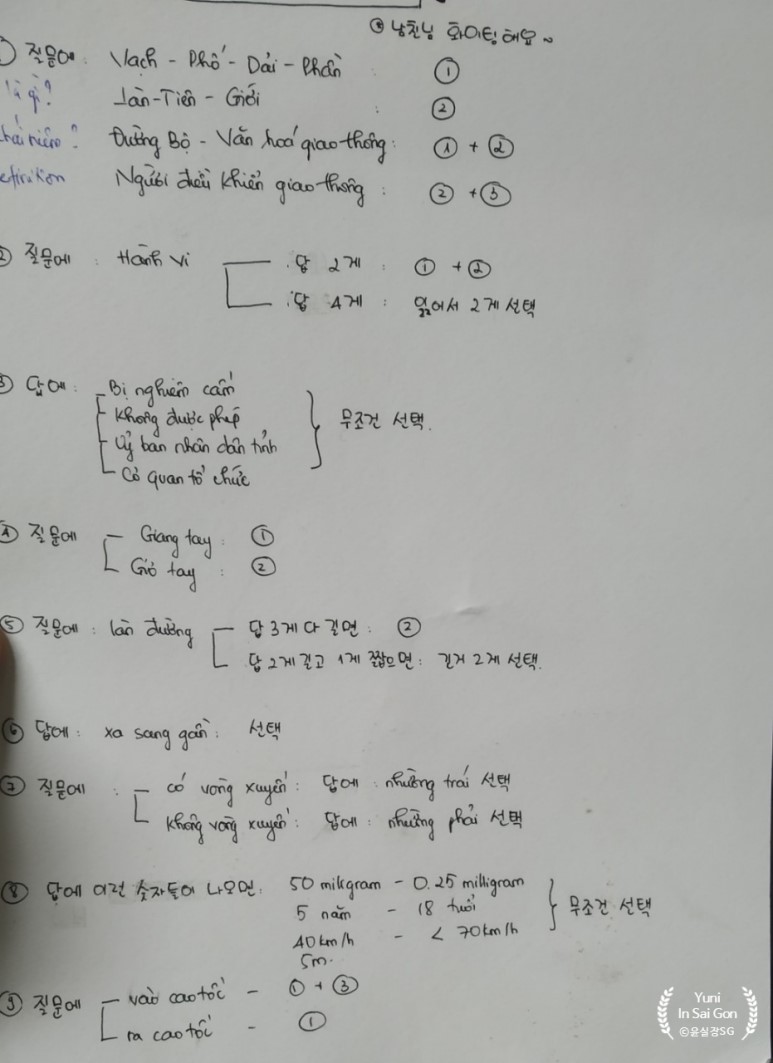 ⊙ 남친님 화이팅해요~
① 질문에: Vạch - Phố - Dải - Phần ①
là gì? Làn - Tiên - Giới : ②
khái niệm? Đường Bộ - Văn hoá giao thông: ① + ②
efinition Người điều khiển giao thông: ② + ③
② 질문에: Hành vi 답 2게: ① + ②
답 4게: 읽어서 2게 선택
③ 답에: Bị nghiêm cấm
không được phép 무조건 선택.
Uỷ ban nhân dân tỉnh
Cơ quan tổ chức
④ 질문에 Giang tay: ①
Giơ tay: ②
⑤ 질문에: làn đường 답 3게 다 길면: ②
답 2게 길고 1게 짧으면: 긴거 2게 선택.
⑥ 답에: xa sang gần: 선택
⑦ 질문에: có vòng xuyến: 답에: nhường trái 선택
không vòng xuyến: 답에: nhường phải 선택
⑧ 답에 이런 숫자들이 나오면: 50 miligram - 0.25 milligram
5 năm - 18 tuổi 무조건 선택
40km/h - < 70km/h
5m.
⑨ 질문에 vào cao tốc - ① + ③
ra cao tốc - ①
Yuni
In Sai Gon
©윤실장SG